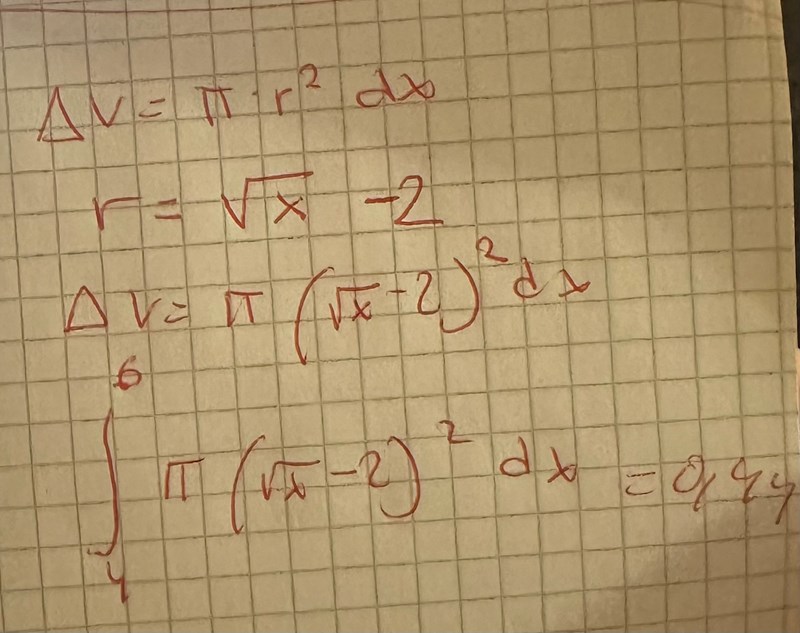 ΔV = π · r² dx
r = √x - 2
ΔV = π (√x - 2)² dx
∫₄⁶ π (√x - 2)² dx = 0,44